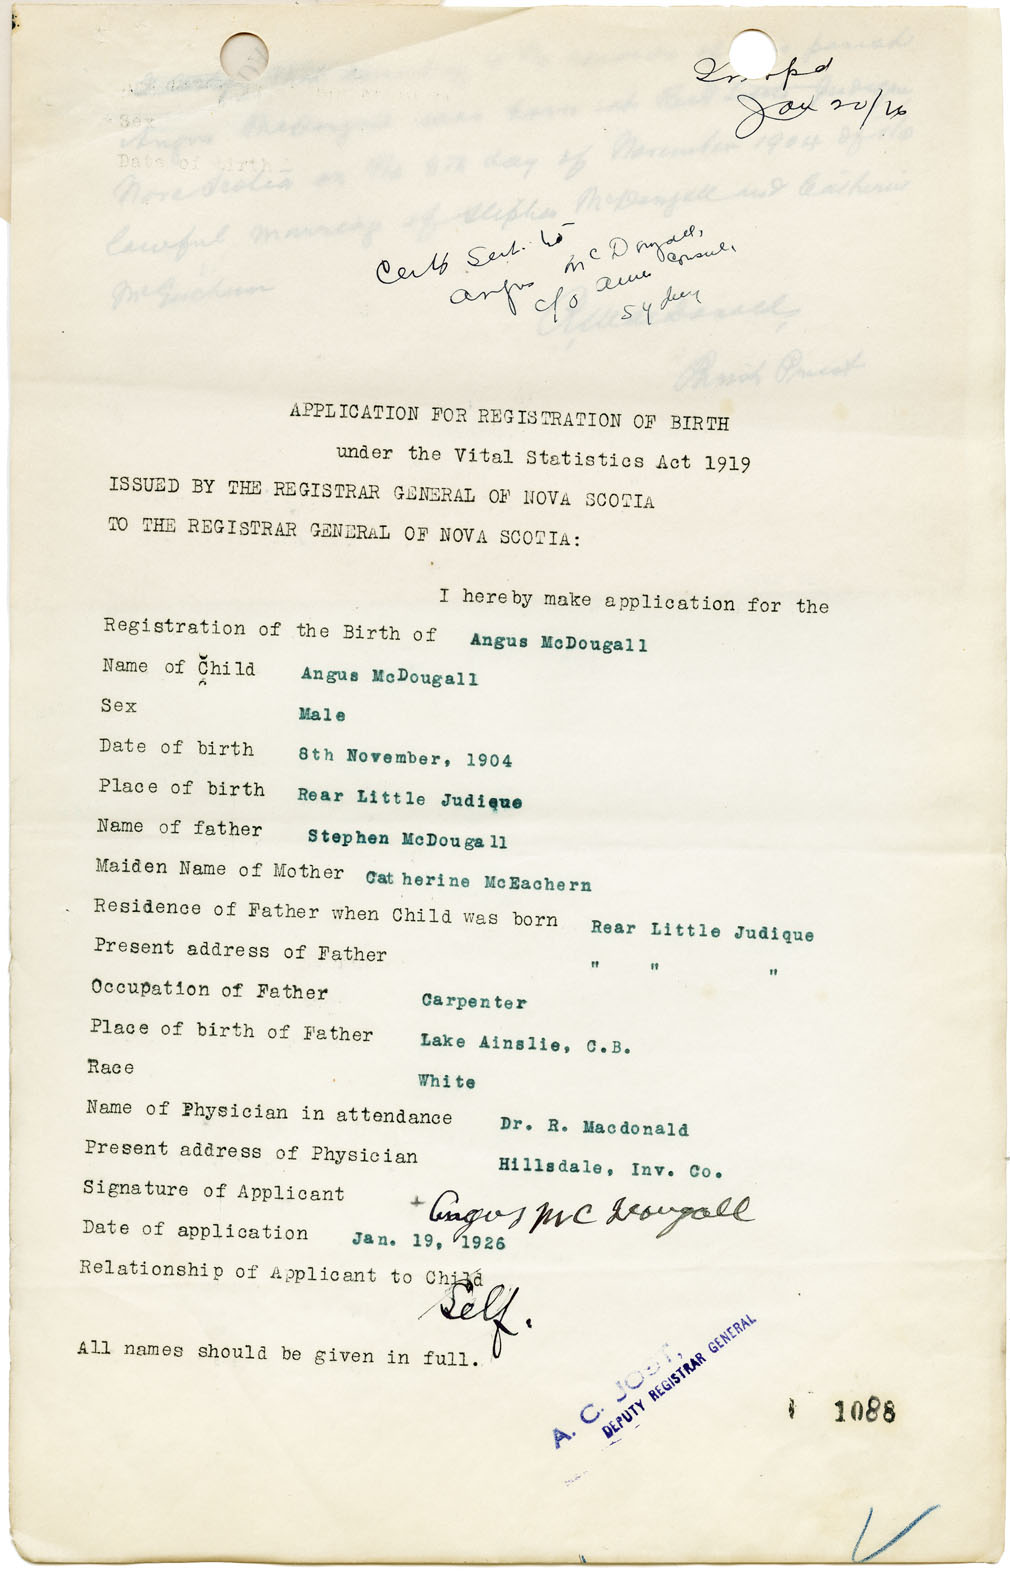 Jan 20/26
Sex
Date of birth
Certf Sent to
Angus McDougall,
c/o Amer Consul,
Sydney
Parish Priest
APPLICATION FOR REGISTRATION OF BIRTH
under the Vital Statistics Act 1919
ISSUED BY THE REGISTRAR GENERAL OF NOVA SCOTIA
TO THE REGISTRAR GENERAL OF NOVA SCOTIA:
I hereby make application for the
Registration of the Birth of Angus McDougall
Name of Child Angus McDougall
Sex Male
Date of birth 8th November, 1904
Place of birth Rear Little Judique
Name of father Stephen McDougall
Maiden Name of Mother Catherine McEachern
Residence of Father when Child was born Rear Little Judique
Present address of Father " " "
Occupation of Father Carpenter
Place of birth of Father Lake Ainslie, C.B.
Race White
Name of Physician in attendance Dr. R. Macdonald
Present address of Physician Hillsdale, Inv. Co.
Signature of Applicant + Angus McDougall
Date of application Jan. 19, 1926
Relationship of Applicant to Child
Self.
All names should be given in full.
A. C. JOST,
DEPUTY REGISTRAR GENERAL
1088